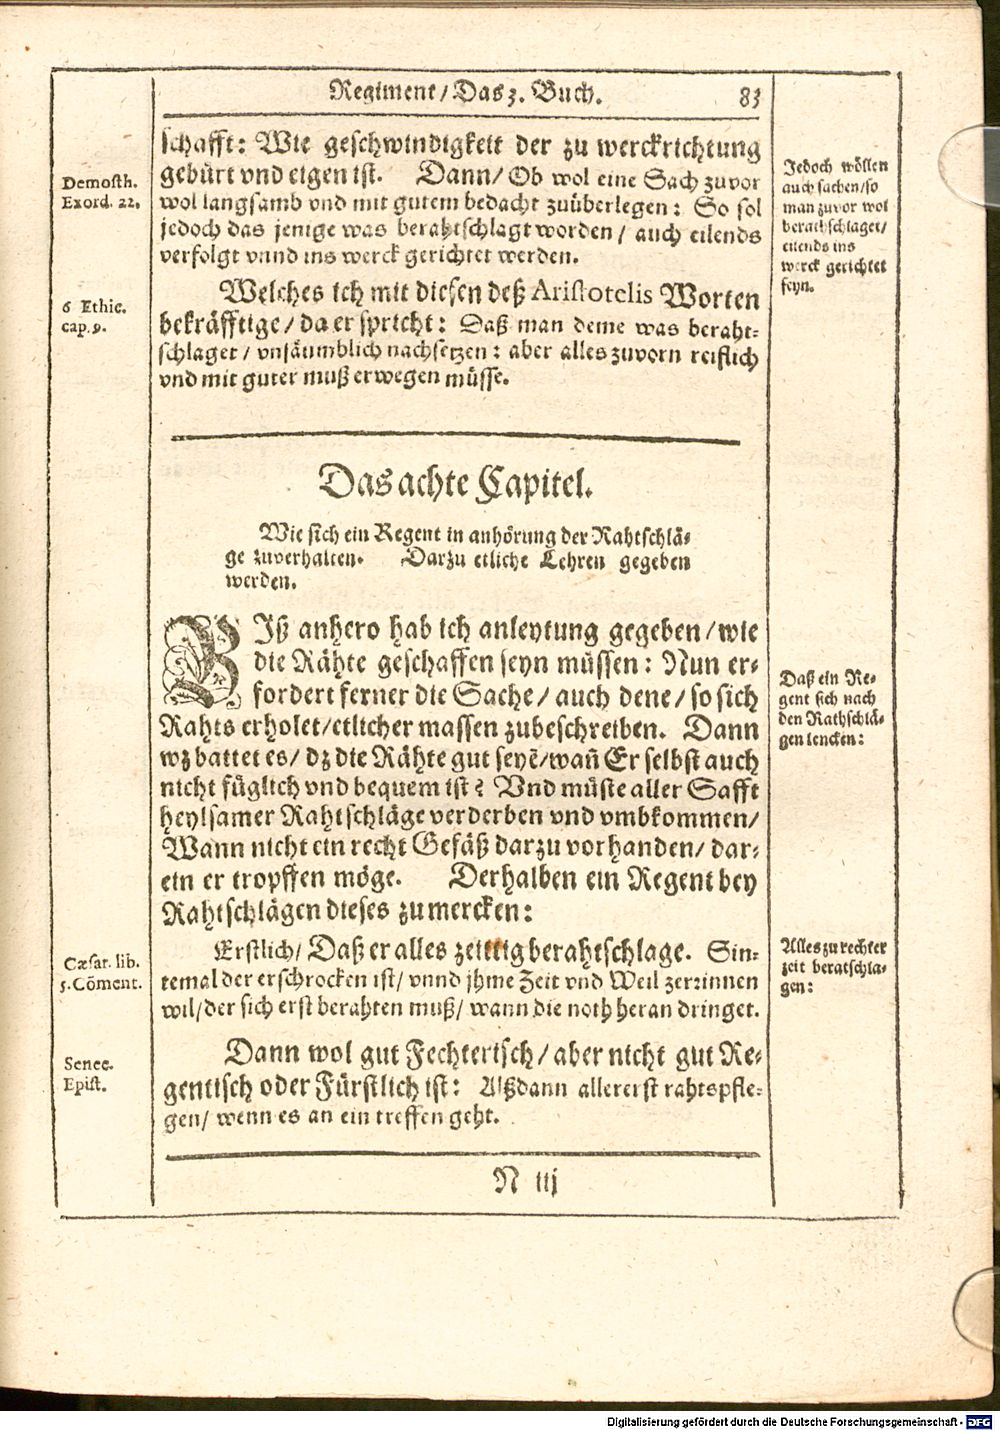 Regiment / Das 3. Buch. 83
schafft: Wie geschwindigkeit der zu werckrichtung
gebürt vnd eigen ist. Dann / Ob wol eine Sach zuvor
wol langsamb vnd mit gutem bedacht zuüberlegen: So sol
jedoch das jenige was berahtschlagt worden / auch eilends
verfolgt vnnd ins werck gerichtet werden.
Demosth.
Exord. 22.
Jedoch wöllen
auch sachen/so
man zuvor wol
berathschlaget/
eilends ins
werck gerichtet
seyn.
Welches ich mit diesen deß Aristotelis Worten
bekräfftige / da er spricht: Daß man deme was beraht-
schlaget / vnsäumblich nachsetzen: aber alles zuvorn reifflich
vnd mit guter muß erwegen müsse.
6 Ethic.
cap. 9.
Das achte Capitel.
Wie sich ein Regent in anhörung der Rahtschlä-
ge zuverhalten. Darzu etliche Lehren gegeben
werden.
BIß anhero hab ich anleytung gegeben / wie
die Rähte geschaffen seyn müssen: Nun er-
fordert ferner die Sache / auch dene / so sich
Rahts erholet / etlicher massen zubeschreiben. Dann
wz battet es / dz die Rähte gut seyẽ / wañ Er selbst auch
nicht füglich vnd bequem ist? Vnd müste aller Safft
heylsamer Rahtschläge verderben vnd vmbkommen /
Wann nicht ein recht Gefäß darzu vorhanden / dar-
ein er tropffen möge. Derhalben ein Regent bey
Rahtschlägen dieses zu mercken:
Daß ein Re-
gent sich nach
den Rathschlä-
gen lencken:
Erstlich / Daß er alles zeittig berahtschlage. Sin-
temal der erschrocken ist / vnnd jhme Zeit vnd Weil zerrinnen
wil / der sich erst berahten muß / wann die noth heran dringet.
Cæsar. lib.
5. Cõment.
Alles zu rechter
zeit beratschla-
gen:
Dann wol gut Fechterisch / aber nicht gut Re-
gentisch oder Fürstlich ist: Alßdann allererst rahtspfle-
gen / wenn es an ein treffen geht.
Senec.
Epist.
N iij
Digitalisierung gefördert durch die Deutsche Forschungsgemeinschaft - DFG